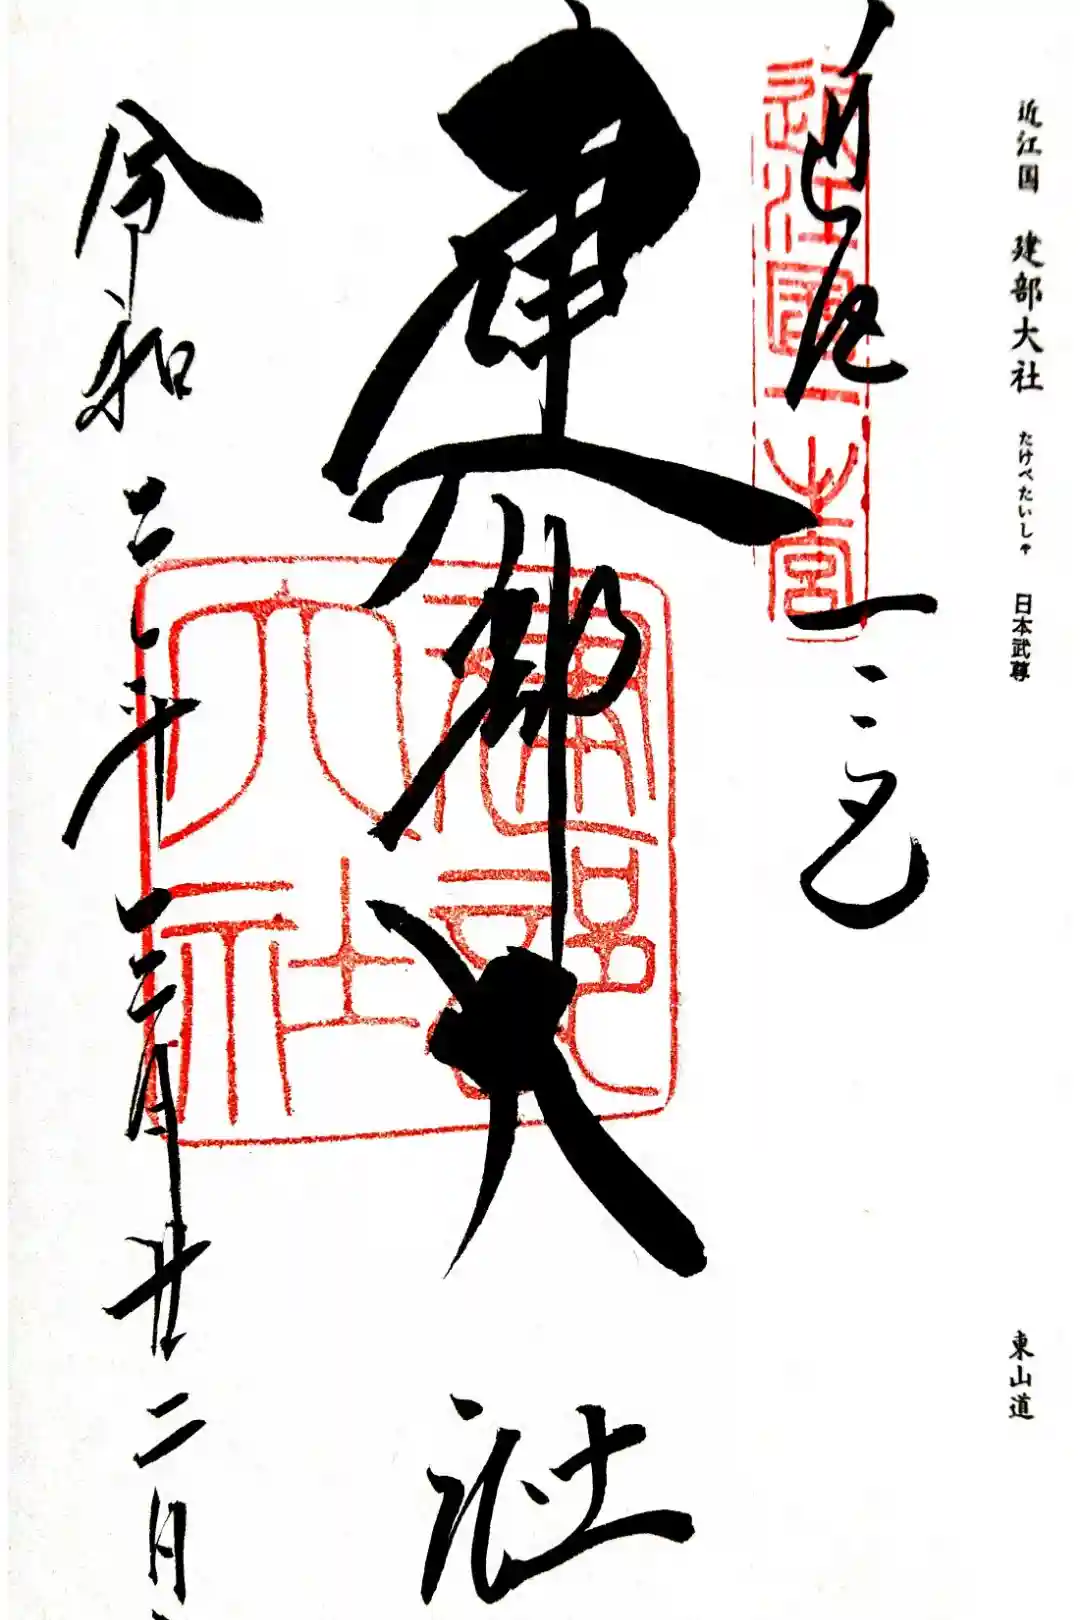 近江国 建部大社 たけべたいしゃ 日本武尊 東山道
近江國一之宮
近江一之宮
建部大社
建部大社
令和三年三月廿二日